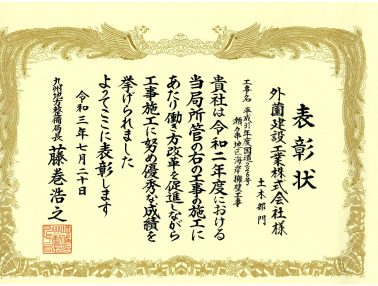 表彰状
土木部門
外薗建設工業株式会社様
工事名 平成31年度国道226号
瀬々串地区海岸擁壁工事
貴社は令和二年度における
当局所管の右の工事の施工に
あたり働き方改革を促進しながら
工事施工に努め優秀な成績を
挙げられました
よってここに表彰します
令和三年七月二十日
九州地方整備局長 藤巻浩之